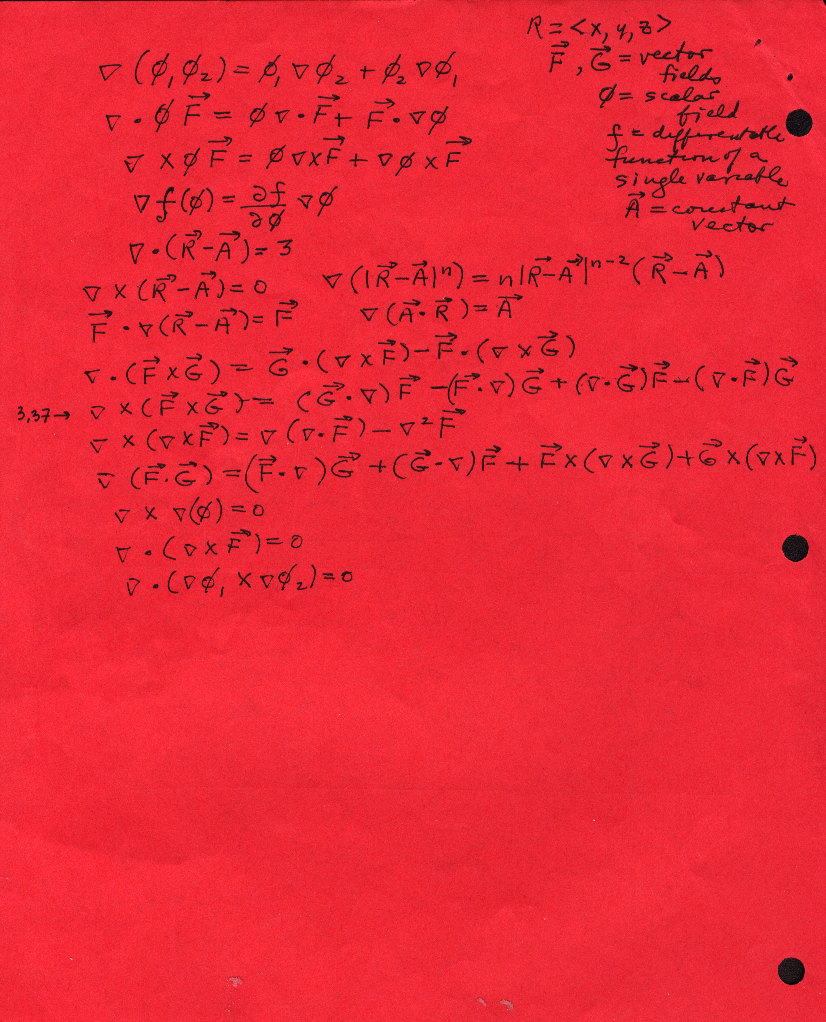 R = <x, y, z>
F⃗, G⃗ = vector
fields
φ = scalar
field
f = differentable
function of a
single variable
A⃗ = constant
vector
∇(φ₁φ₂) = φ₁∇φ₂ + φ₂∇φ₁
∇·φF⃗ = φ∇·F⃗ + F⃗·∇φ
∇×φF⃗ = φ∇×F⃗ + ∇φ×F⃗
∇f(φ) = ∂f/∂φ ∇φ
∇·(R⃗-A⃗) = 3
∇×(R⃗-A⃗) = 0 ∇(|R⃗-A⃗|ⁿ) = n|R⃗-A⃗|ⁿ⁻²(R⃗-A⃗)
F⃗·∇(R⃗-A⃗) = F⃗ ∇(A⃗·R⃗) = A⃗
∇·(F⃗×G⃗) = G⃗·(∇×F⃗) - F⃗·(∇×G⃗)
3,37→ ∇×(F⃗×G⃗) = (G⃗·∇)F⃗ - (F⃗·∇)G⃗ + (∇·G⃗)F⃗ - (∇·F⃗)G⃗
∇×(∇×F⃗) = ∇(∇·F⃗) - ∇²F⃗
∇(F⃗·G⃗) = (F⃗·∇)G⃗ + (G⃗·∇)F⃗ + F⃗×(∇×G⃗) + G⃗×(∇×F⃗)
∇×∇(φ) = 0
∇·(∇×F⃗) = 0
∇·(∇φ₁×∇φ₂) = 0